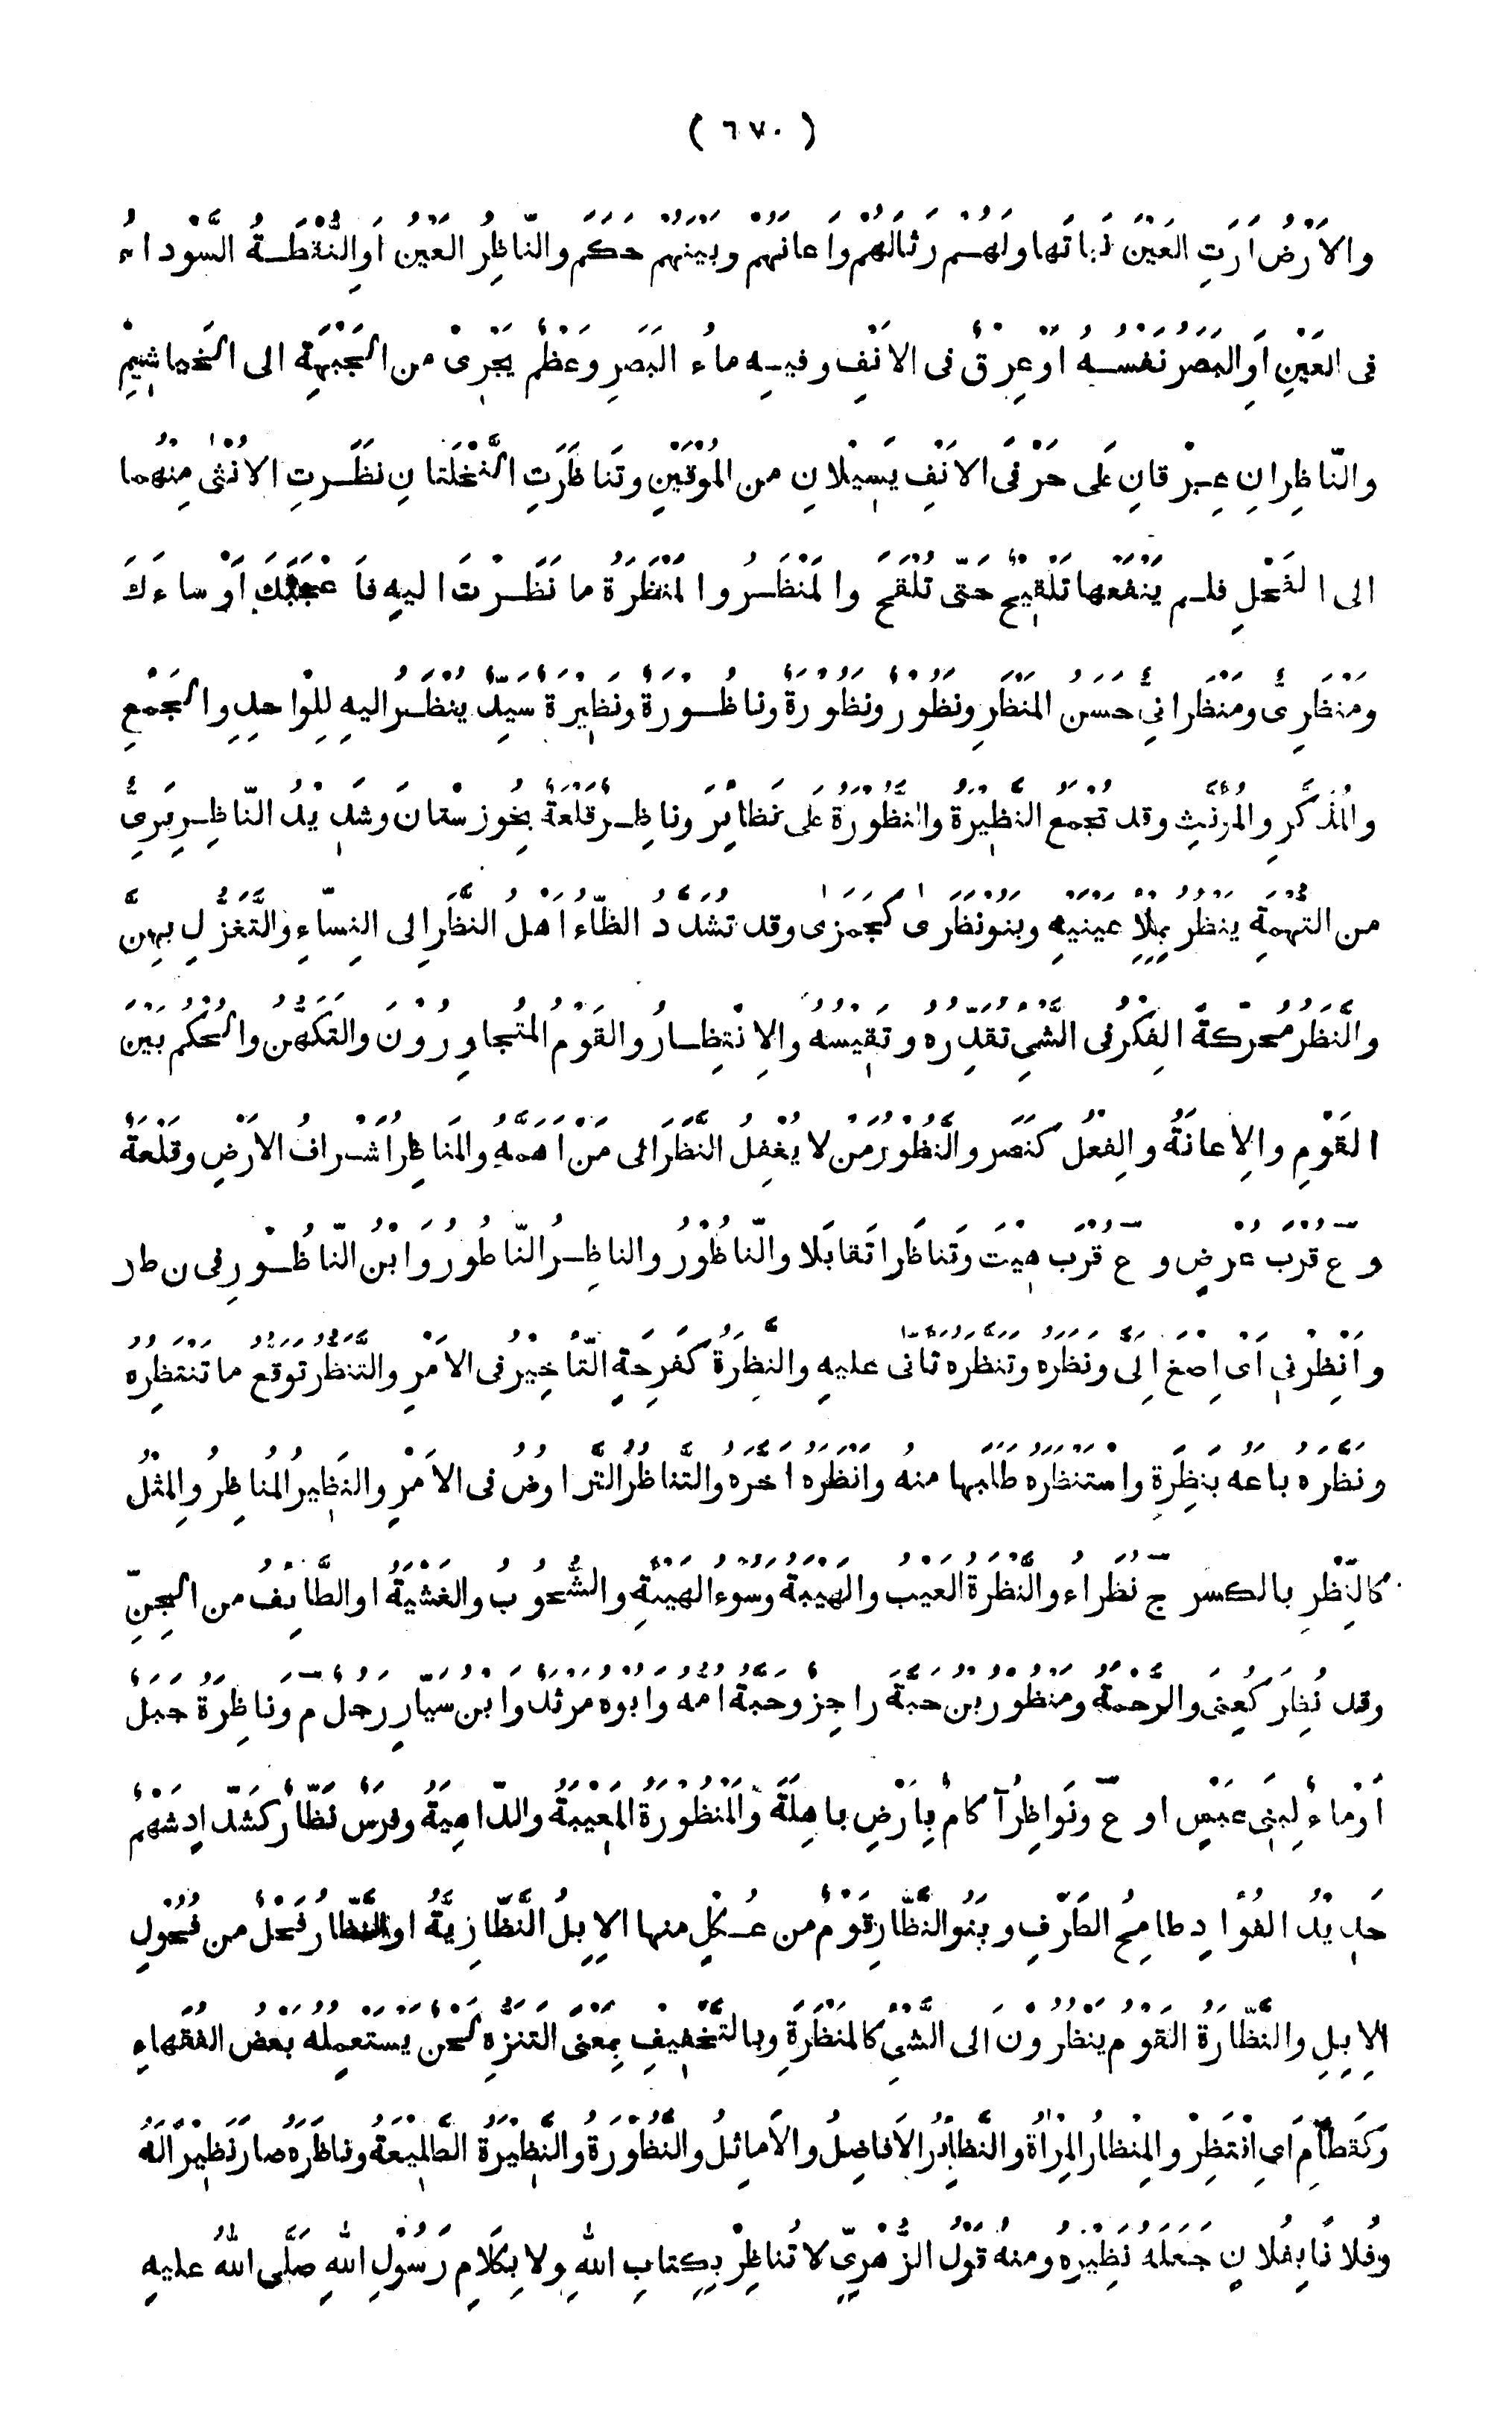 ( ٦٧٠ )
والاَرْضُ اَرَتِ العَيْنَ نَباتَها ولَهُمْ رَثالَهُمْ واَعانَهُمْ وبَيْنَهُمْ حَكَمَ والنّاظِرُ العَيْنُ اَوِالنُّقْطَةُ السَّوْداءُ
فى العَيْنِ اَوِالبَصَرُ نَفْسُهُ اَوْعِرْقٌ فى الاَنْفِ وفيهِ ماءُ البَصَرِ وعَظْمٌ يَجْرِىْ من الجَبْهَةِ الى الخَياشِيْمِ
والنّاظِرانِ عِرْقانِ عَلى حَرْفَىِ الاَنْفِ يَسِيْلانِ من المُوْقَيْنِ وتَناظَرَتِ النَّخْلَتانِ نَظَرَتِ الاُنْثٰى مِنْهُما
الى الفَحْلِ فلم يَنْفَعْها تَلْقِيْحٌ حَتّى تُلْقَحَ والمَنْظَرُ والمَنْظَرَةُ ما نَظَرْتَ اليهِ فاَعْجَبَكَ اَوْ ساءَكَ
ومَنْظَرِىٌّ ومَنْظَرانِىٌّ حَسَنُ المَنْظَرِ ونَظُوْرٌ ونَظُوْرَةٌ وناظُوْرَةٌ ونَظِيْرَةٌ سَيِّدٌ يُنْظَرُ اليهِ لِلْواحِدِ والجَمْعِ
والمُذَكَّرِ والمُؤَنَّثِ وقد تُجْمَعُ النَّظِيْرَةُ والنَّظُوْرَةُ عَلى نَظائِرَ وناظِرُ قَلْعَةٌ بِخُوْزِسْتانَ وشَدِيْدُ النّاظِرِ بَرِىٌّ
من التُّهْمَةِ يَنْظُرُ بِمِلْإِ عَيْنَيْهِ وبَنُوْنَظَرٰى كَجَمَزٰى وقد تُشَدَّدُ الظّاءُ اَهْلُ النَّظَرِ الى النِّساءِ والتَّغَزُّلِ بِهِنَّ
والنَّظَرُ مُحَرَّكَةً الفِكْرُ فى الشَّىْءِ تُقَدِّرُهُ وتَقِيْسُهُ والاِنْتِظارُ والقَوْمُ المُتَجاوِرُوْنَ والتَّكَهُّنُ والحُكْمُ بَيْنَ
القَوْمِ والاِعانَةُ والفِعْلُ كَنَصَرَ والنَّظُوْرُ مَنْ لا يُغْفِلُ النَّظَرَ الى مَنْ اَهَمَّهُ والمَناظِرُ اَشْرافُ الاَرْضِ وقَلْعَةٌ
و ع قُرْبَ عُرْضٍ و ع قُرْبَ هِيْتَ وتَناظَرا تَقابَلا والنّاظُوْرُ والناظِرُ النّاطُورُ وابْنُ النّاظُوْرِ فى ن ط ر
وانْظُرْنى اى اِصْغَ اِلَىَّ ونَظَرَهُ وتَنَظَّرَهُ تَاَنّى عليهِ والنَّظِرَةُ كَفَرِحَةٍ التَّاْخِيْرُ فى الاَمْرِ والتَّنَظُّرُ تَوَقُّعُ ما تَنْتَظِرُهُ
ونَظَرَهُ باعَهُ بِنَظِرَةٍ واسْتَنْظَرَهُ طَلَبَها منه واَنْظَرَهُ اَخَّرَهُ والتَّناظُرُ التَّراوُضُ فى الاَمْرِ والنَّظِيْرُ المُناظِرُ والمِثْلُ
كالنِّظْرِ بالكسر ج نُظَراءُ والنَّظْرَةُ العَيْبُ والهَيْبَةُ وسُوْءُ الهَيْئَةِ والشُّحُوْبُ والغَشْيَةُ اوالطَّائِفُ من الجِنِّ
وقد نُظِرَ كَعُنِىَ والرَّحْمَةُ ومَنْظُوْرُ بْنُ حَبَّةَ راجِزٌ وحَبَّةُ اُمُّهُ واَبُوْهُ مَرْثَدٌ وابْنُ سَيّارٍ رَجُلٌ م وناظِرَةُ جَبَلٌ
اَوْماءٌ لِبَنى عَبْسٍ او ع ونَواظِرُ آكامٌ بِاَرْضِ باهِلَةَ والمَنْظُوْرَةُ المَعِيْبَةُ والدّاهِيَةُ وفَرَسٌ نَظّارٌ كَشَدّادٍ شَهْمٌ
حَدِيْدُ الفُؤادِ طامِحُ الطَّرْفِ وبَنُو النَّظّارِ قَوْمٌ من عُكْلٍ منها الاِبِلُ النَّظّارِيَّةُ او النَّظّارُ فَحْلٌ من فُحُوْلِ
الاِبِلِ والنَّظّارَةُ القَوْمُ يَنْظُرُوْنَ الى الشَّىْءِ كالمَنْظَرَةِ وبالتَّخْفِيْفِ بِمَعْنَى التَّنَزُّهِ لَحْنٌ يَسْتَعْمِلُهُ بَعْضُ الفُقَهاءِ
وكَقَطامِ اىِ انْتَظِرْ والمِنْظارُ المِرْآةُ والنَّظائِرُ الاَفاضِلُ والاَماثِلُ والنَّظُوْرَةُ والنَّظِيْرَةُ الطَّلِيْعَةُ وناظَرَهُ صارَ نَظِيْرًا لَهُ
وفُلانًا بِفُلانٍ جَعَلَهُ نَظِيْرَهُ ومنهُ قَوْلُ الزُّهْرِىِّ لا تُناظِرْ بِكِتابِ اللهِ ولا بِكَلامِ رَسُوْلِ اللهِ صَلَّى اللهُ عليهِ